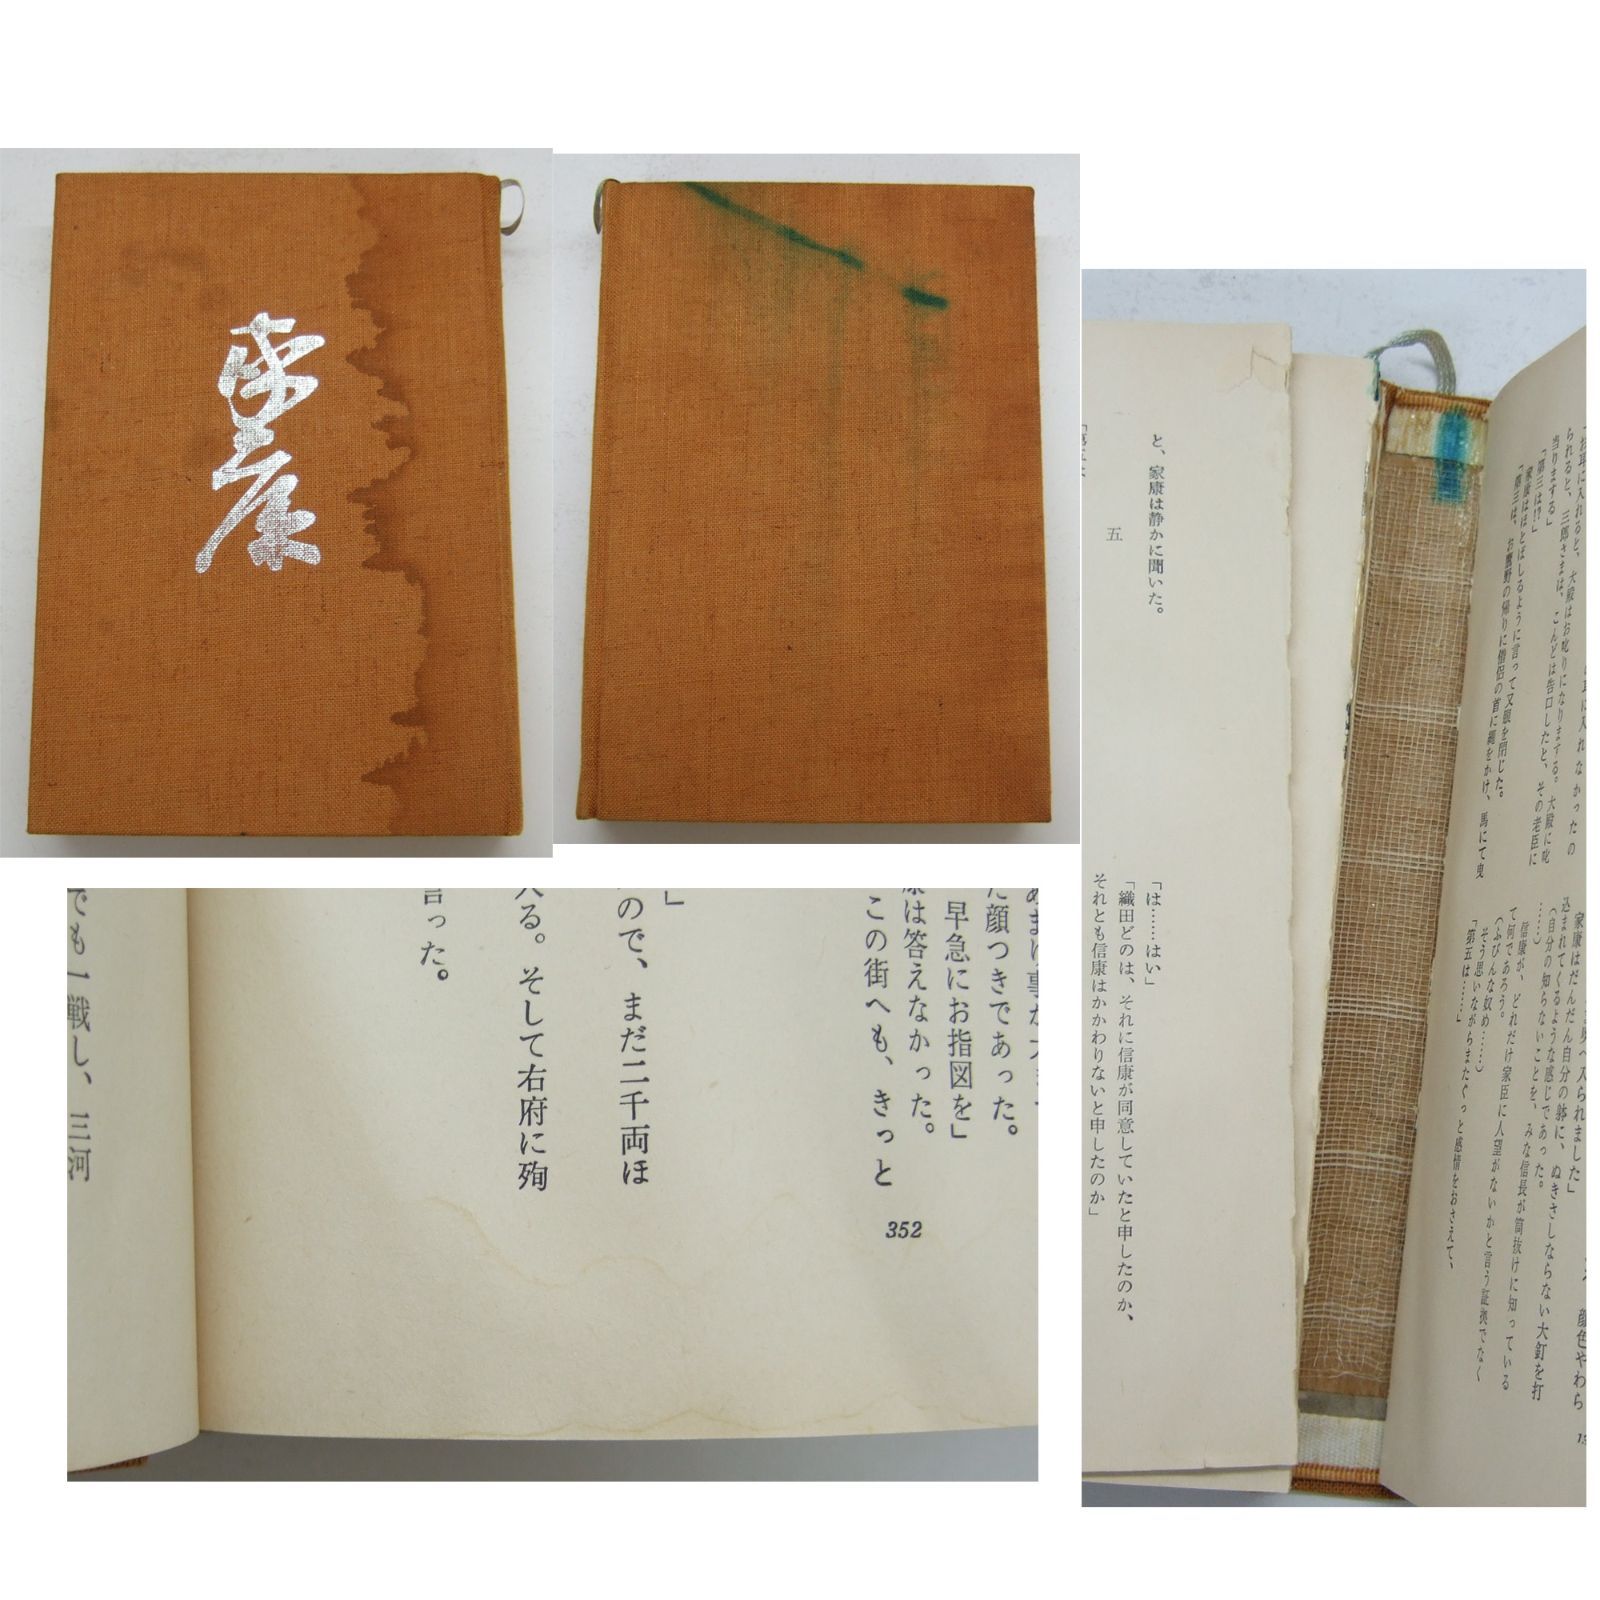 家康
と、家康は静かに聞いた。
五
「は……はい」
「織田どのは、それに信康が同意していたと申したのか、
それとも信康はかかわりないと申したのか」
お耳に入れると、大殿はお叱りになりまする。大殿に叱
られると、三郎さまは、こんどは告口したと、その老臣に
当りまする」
「第三は!?」
家康はほとばしるように言って又眼を閉じた。
「第三は、お鷹野の帰りに僧侶の首に縄をかけ、馬にて曳
家康はだんだん自分の躰に、ぬきさしならない大釘を打
込まれてくるような感じであった。
(自分の知らないことを、みな信長が筒抜けに知っている
……)
信康が、どれだけ家臣に人望がないかと言う証拠でなく
て何であろう。
(ふびんな奴め……)
そう思いながらまたぐっと感情をおさえて、
「第五は……」
た顔つきであった。
早急にお指図を」
康は答えなかった。
この街へも、きっと
352
」
ので、まだ二千両ほ
入る。そして右府に殉
言った。
でも一戦し、三河